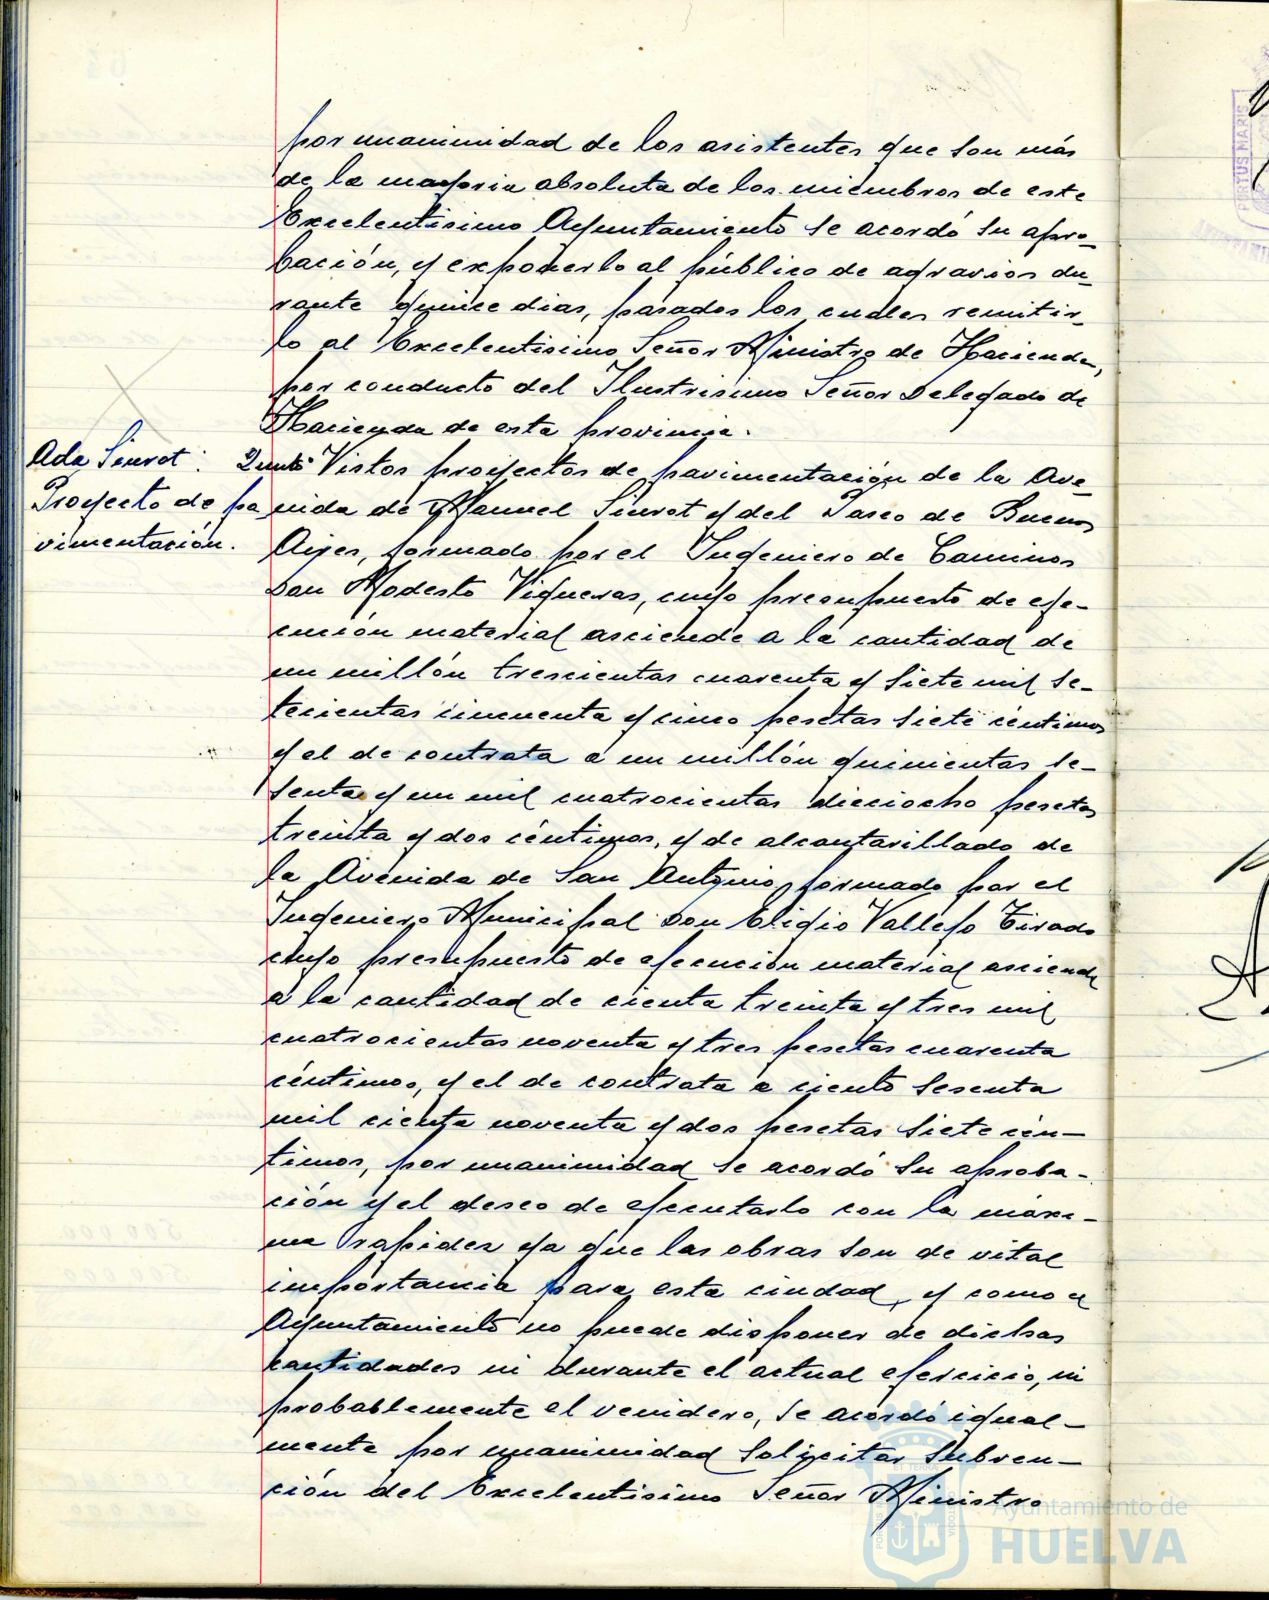 por unanimidad de los asistentes que son más
de la mayoria absoluta de los miembros de este
Excelentisimo Ayuntamiento se acordó su apro-
bación, y exponerlo al público de agravios du-
rante quince dias, pasados los cuales remitir-
lo al Excelentisimo Señor Ministro de Hacienda,
por conducto del Ilustrisimo Señor Delegado de
Hacienda de esta provincia.
Ada Siurot:
Proyecto de pa
vimentación.
Punto Vistos proyectos de pavimentación de la Ave-
nida de Manuel Siurot y del Paseo de Buenos
Aires, formado por el Ingeniero de Caminos
Don Modesto Vigueras, cuyo presupuesto de eje-
cución material asciende a la cantidad de
un millón trescientas cuarenta y siete mil se-
tecientas cincuenta y cinco pesetas siete céntimos
y el de contrata a un millón quinientas se-
senta y un mil cuatrocientas dieciocho pesetas
treinta y dos céntimos, y de alcantarillado de
la Avenida de San Antonio, formado por el
Ingeniero Municipal Don Eligio Vallejo Tirado
cuyo presupuesto de ejecución material asciende
a la cantidad de cienta treinta y tres mil
cuatrocientas noventa y tres pesetas cuarenta
céntimos, y el de contrata a ciento sesenta
mil cienta noventa y dos pesetas siete cén-
timos, por unanimidad se acordó su aproba-
ción y el deseo de ejecutarlo con la máxi-
ma rapidez ya que las obras son de vital
importancia para esta ciudad, y como el
Ayuntamiento no puede disponer de dichas
cantidades ni durante el actual ejercicio, ni
probablemente el venidero, se acordó igual-
mente por unanimidad solicitar subven-
ción del Excelentisimo Señor Ministro
Ayuntamiento de
HUELVA
PORTUS MARIS